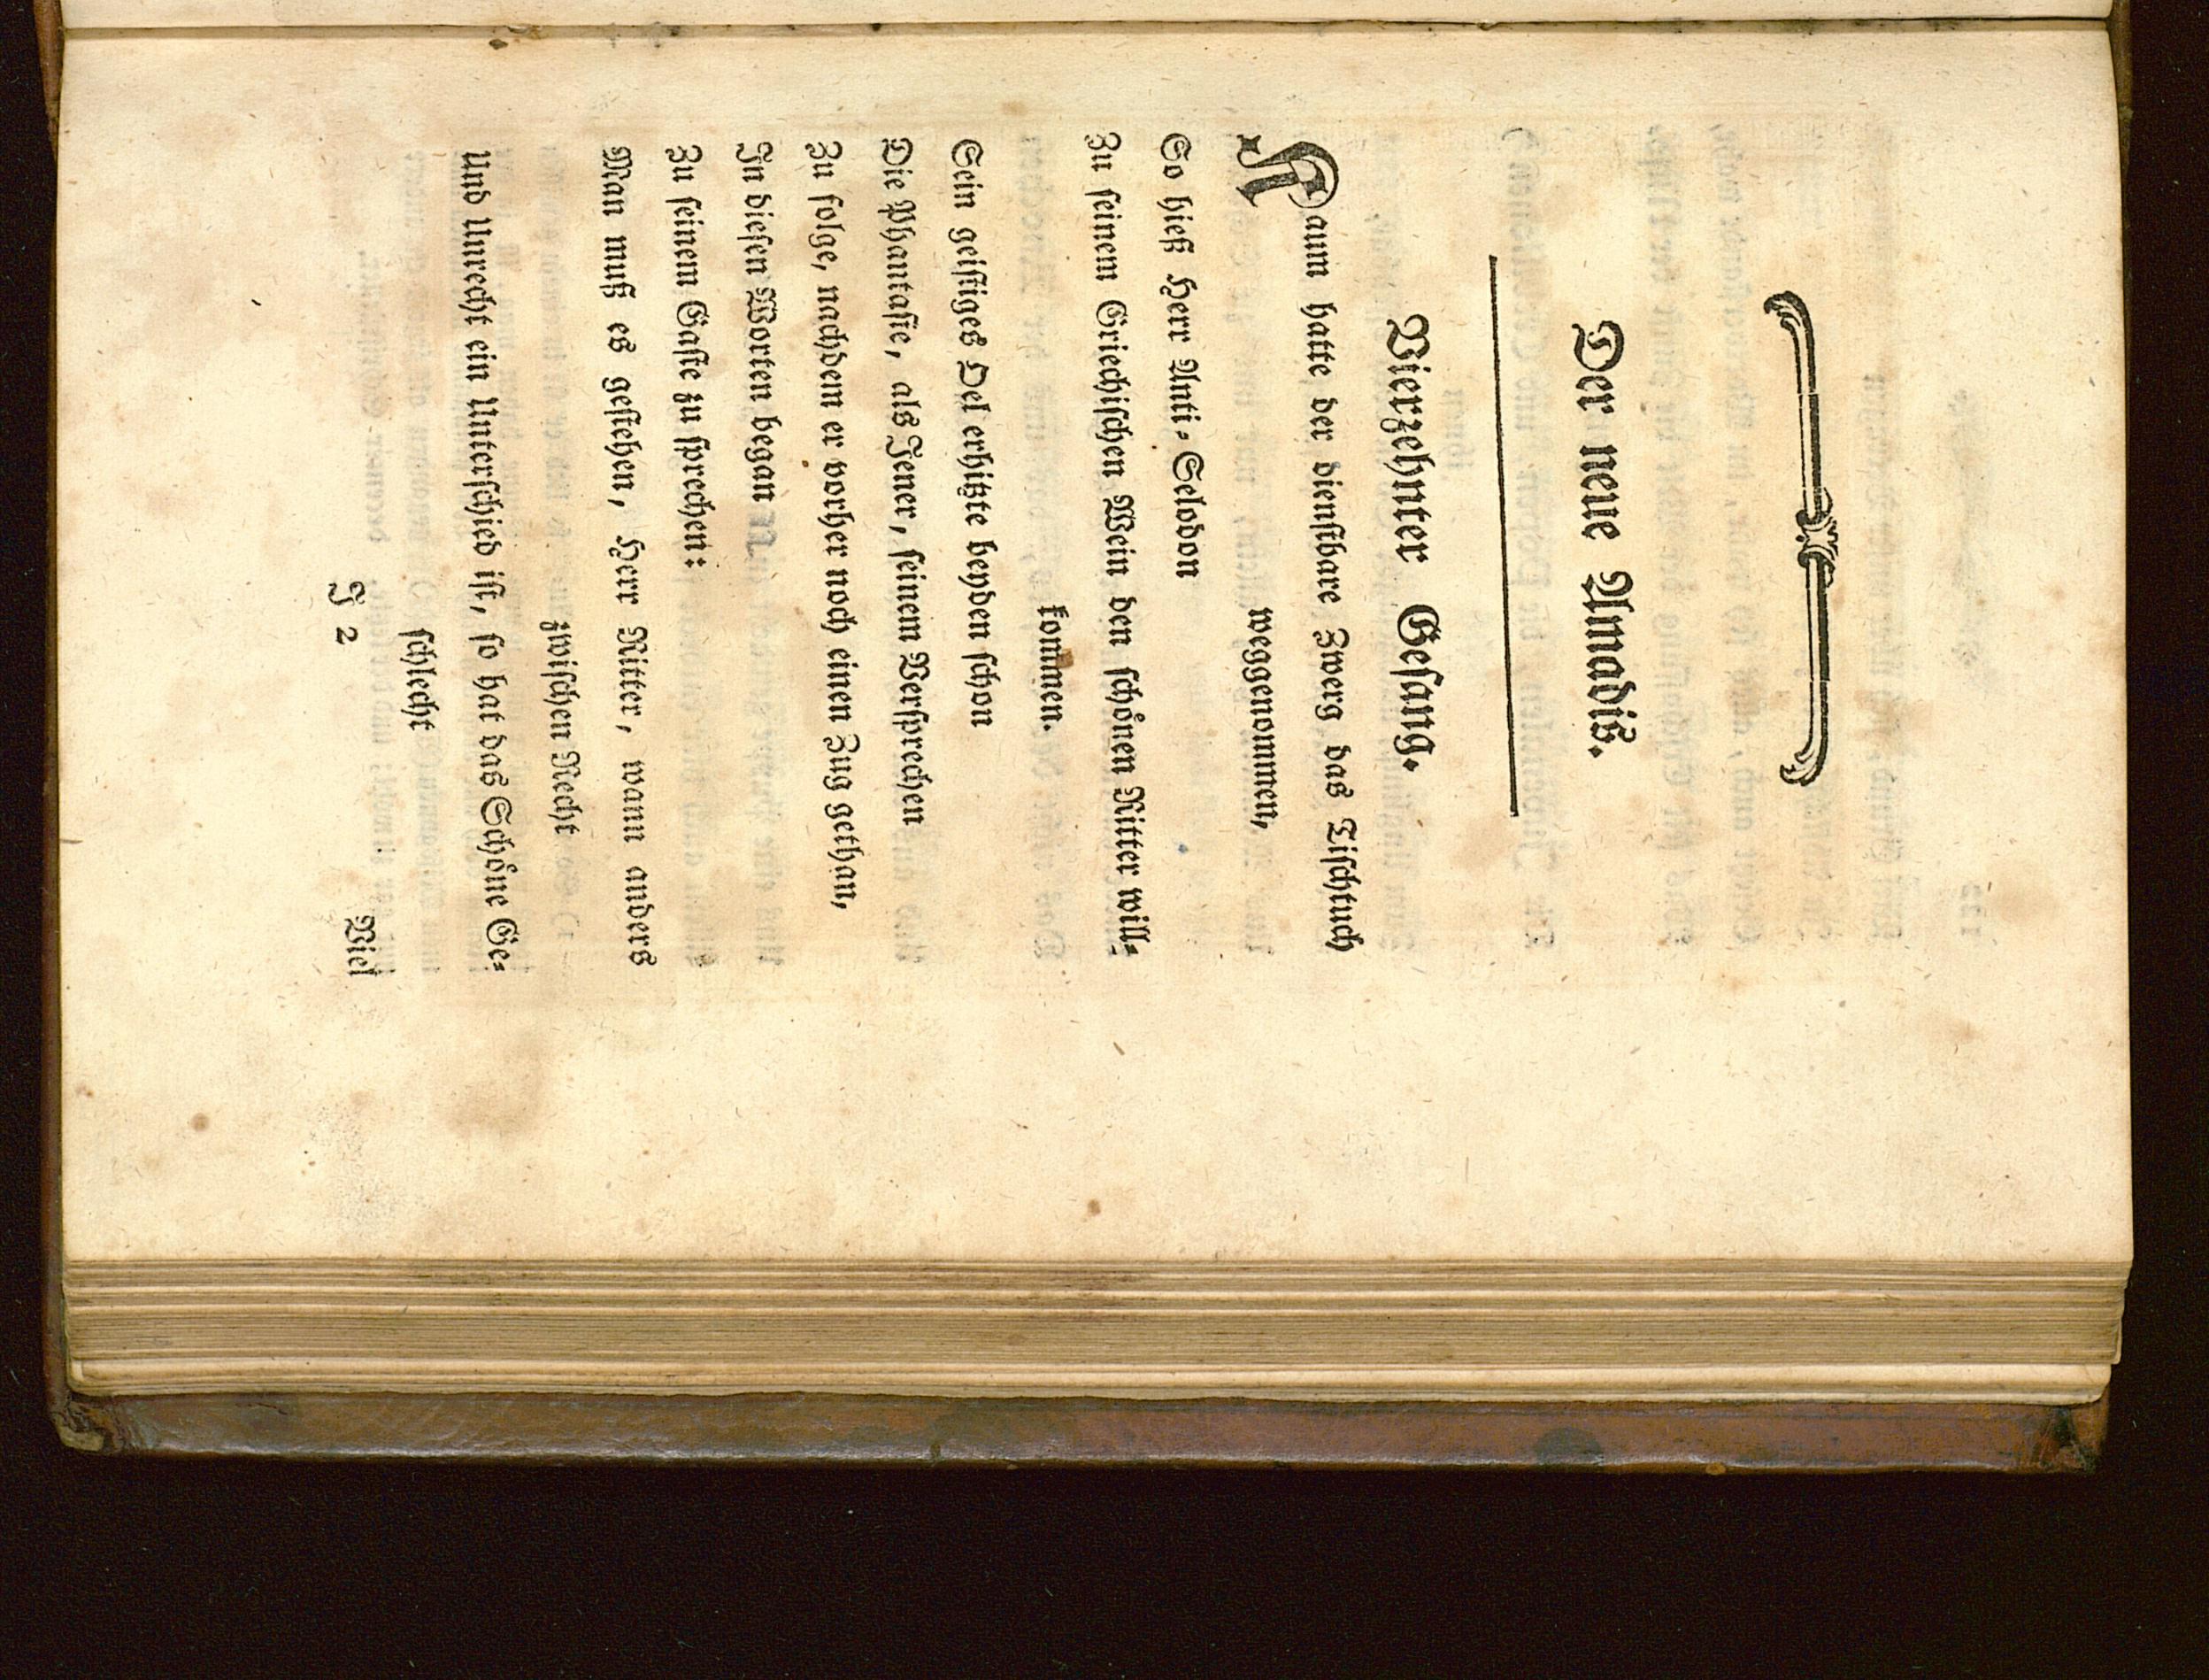 Der neue Amadis.
Vierzehnter Geſang.
Kaum hatte der dienſtbare Zwerg das Tiſchtuch
weggenommen,
So hieß Herr Anti-Seladon
Zu ſeinem Griechiſchen Wein den ſchoͤnen Ritter will-
kommen.
Sein geiſtiges Oel erhitzte beyden ſchon
Die Phantaſie, als Jener, ſeinem Verſprechen
Zu folge, nachdem er vorher noch einen Zug gethan,
In dieſen Worten began
Zu ſeinem Gaſte zu ſprechen:
Man muß es geſtehen, Herr Ritter, wann anders
zwiſchen Recht
Und Unrecht ein Unterſchied iſt, ſo hat das Schoͤne Ge-
ſchlecht
J 2 Viel